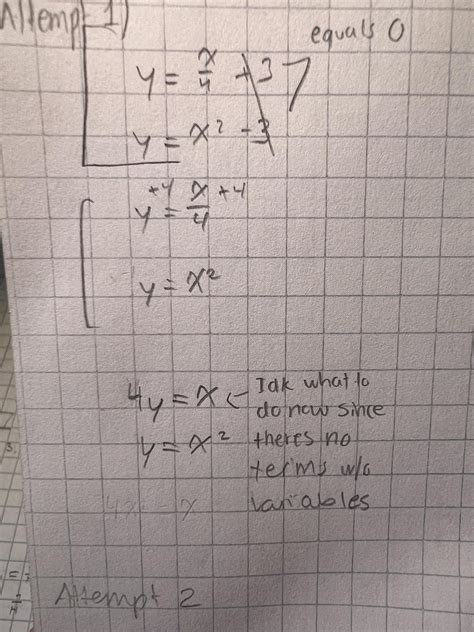 Attempt 1)
equals 0
y = x/4 + 3
y = x² - 3
+4 +4
y = x/4
y = x²
4y = x ← Idk what to
do now since
y = x² theres no
terms w/o
variables
Attempt 2